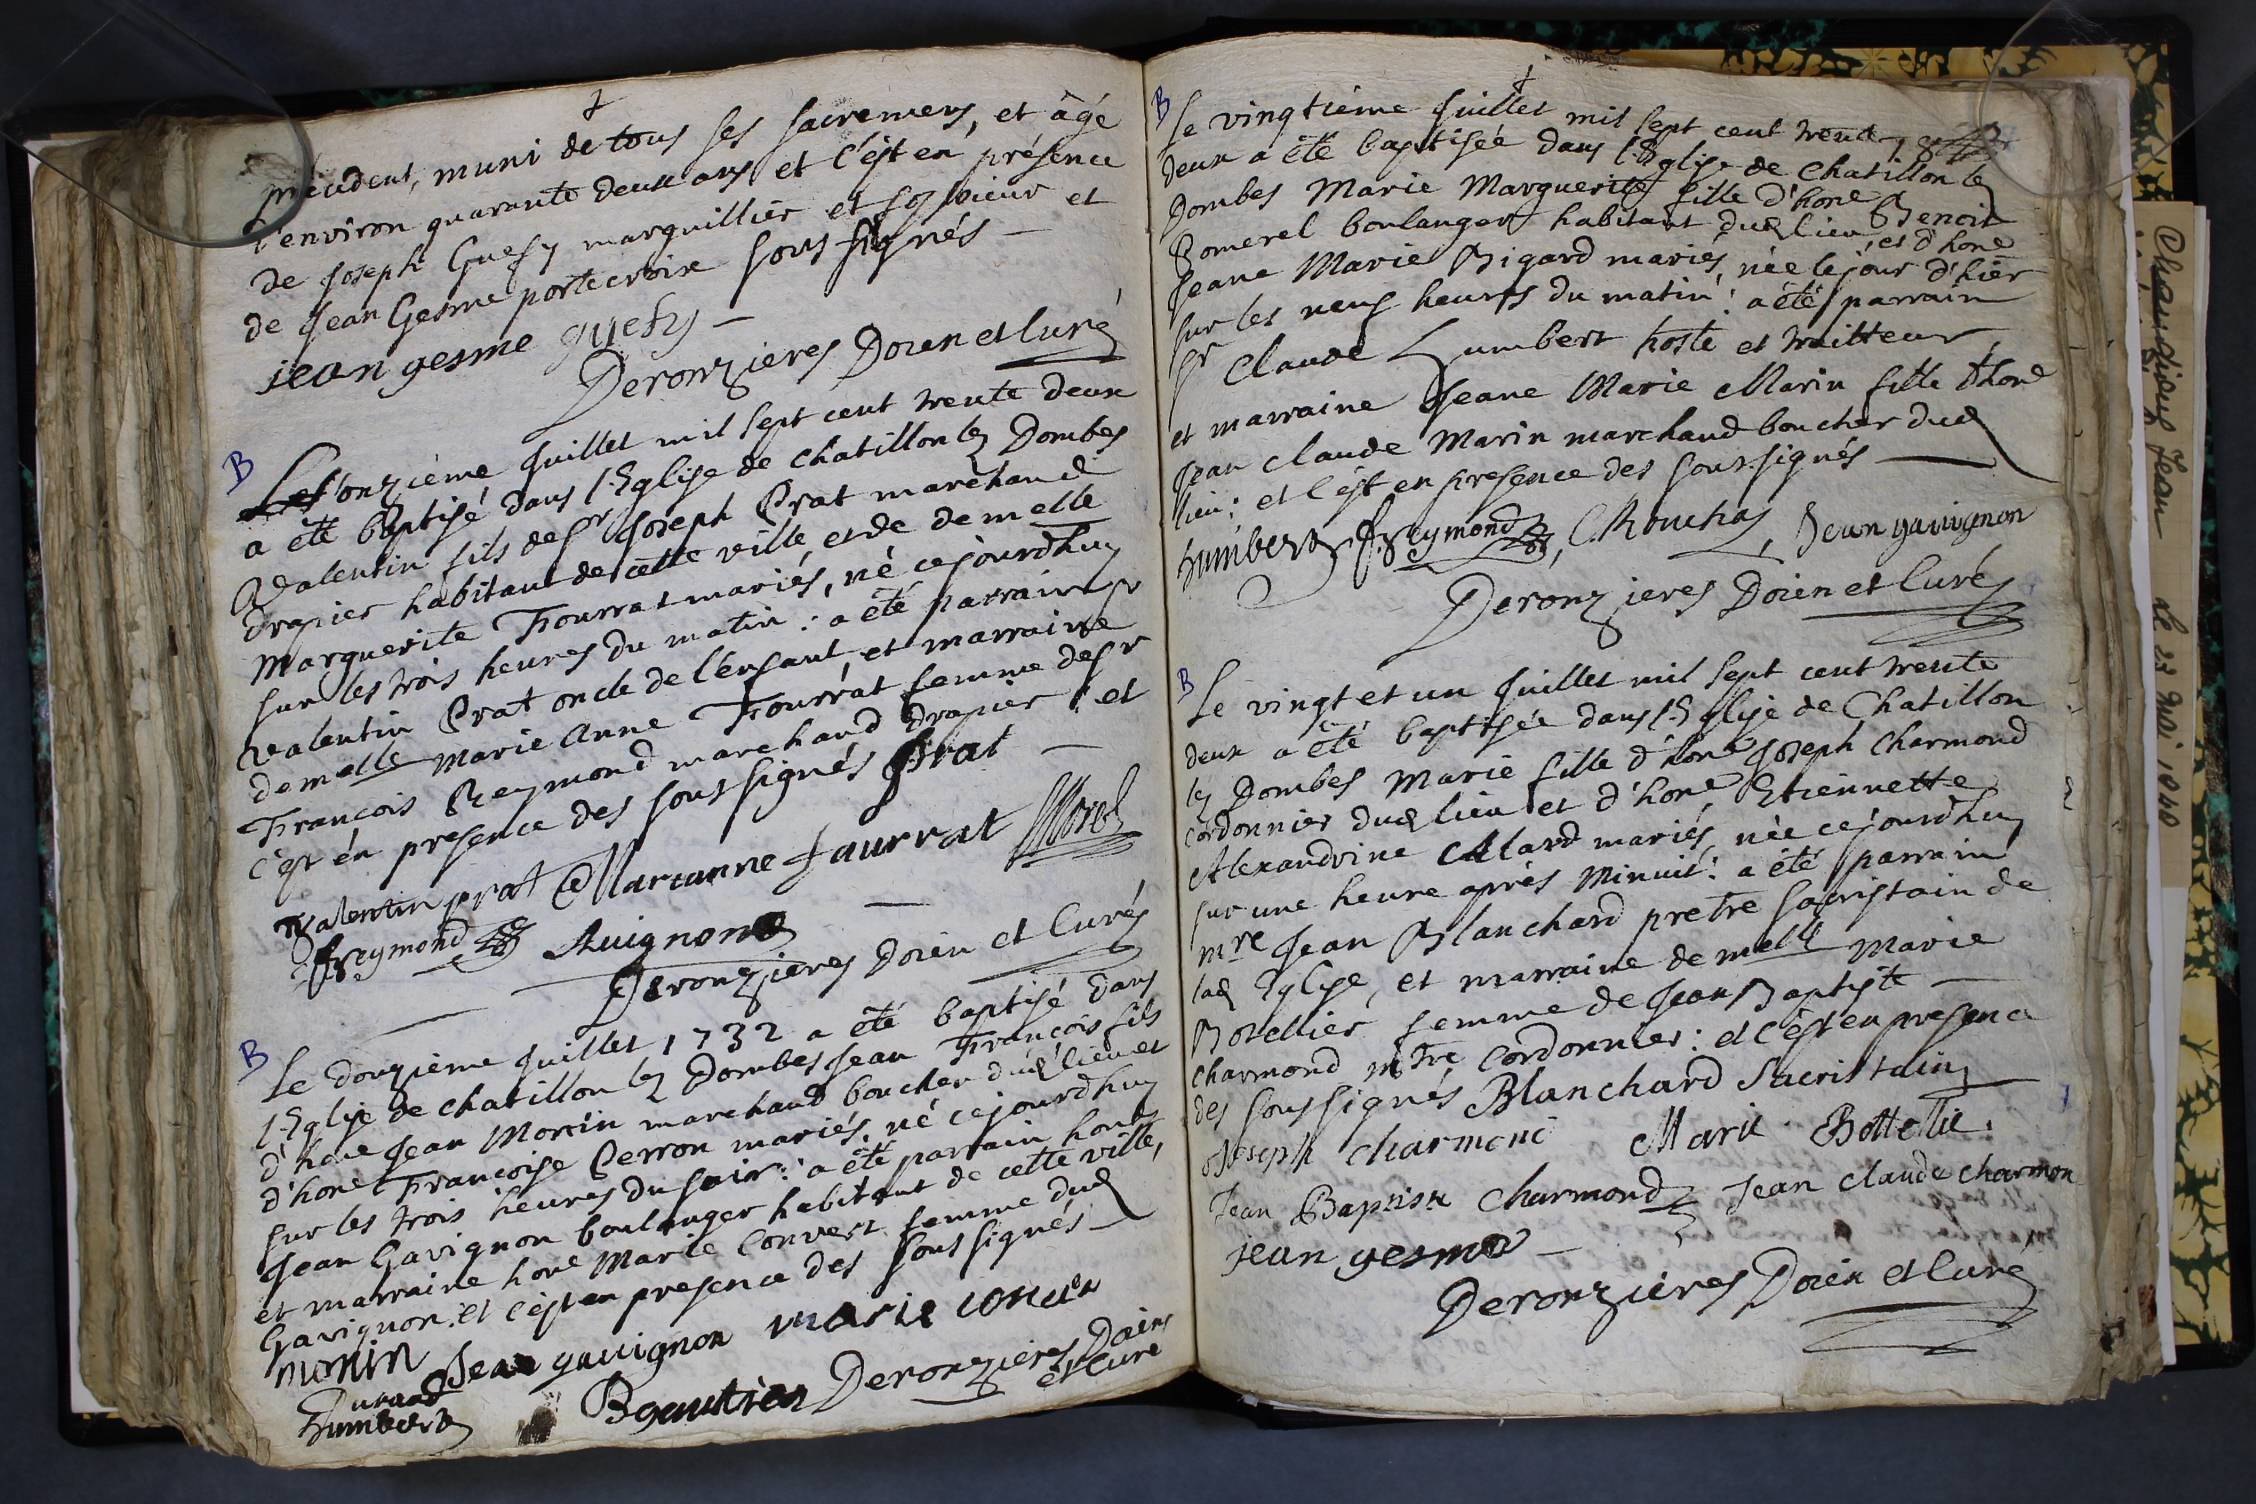 précedent, muni de tous ses sacremens, et âgé
d'environ quarante deux ans et c'ést en présence
de Joseph Guesy marguillier et fossoieur et
de Jean Gesme portecroix sous signés —
jean gesme guesy —
Deronzieres Doien et Curé
B
onzième Juillet mil sept cent trente deux
a été baptisé dans l'Eglise de Chatillon lez Dombes
Valentin fils de Sr Joseph Prat marchand
drapier habitant de cette ville et de demelle
Marguerite Fourrat mariés, né cejourdhuy
sur les trois heures du matin : a été parrain Sr
Valentin Prat oncle de l'enfant, et marraine
demelle Marie Anne Fourrat femme de Sr
François Reymond marchand drapier ; et
c'est en presence des sous signés Prat —
Valentin prat Marianne faurrat Morel
freymond Avignon —
Deronzieres Doien et Curé
B
Le douzième Juillet 1732 a été baptisé dans
l'Eglise de Chatillon lez Dombes Jean François fils
d'hone Jean Morin marchand boucher dud lieu et
d'hone Françoise Perron mariés, né cejourdhuy
sur les trois heures du soir : a été parrain hone
Jean Gavignon boulanger habitant de cette ville,
et marraine hone Marie Convert femme dud
Gavignon. et c'est en presence des sous signés —
morin Jean gauignon marie conuer
Durand
humbert Bgautier Deronzieres Doien
et Curé
B
Le vingtième Juillet mil sept cent trente
deux a été baptisée dans l'Eglise de Chatillon lez
Dombes Marie Marguerite fille d'hone Benoit
Pomerel boulanger habitant dud lieu, et d'hone
Jeane Marie Bigard mariés, née le jour d'hiér
sur les neuf heures du matin : a été parrain
Sr Claude humbert hoste et traitteur,
et marraine Jeane Marie Marin fille d'hone
Jean Claude Marin marchand boucher dud
lieu ; et c'est en presence des sous.signés —
humbert, freymond, C. Rouchas, Jean gauignon
Deronzieres Doien et Curé
B
Le vingt et un Juillet mil sept cent trente
deux a été baptisée dans l'Eglise de Chatillon
lez Dombes Marie fille d'hone Joseph Charmond
cordonnier dud lieu et d'hone Etiennette
Alexandrine Allard mariés, née cejourdhuy
sur une heure après minuit : a été parrain
mre Jean Blanchard pretre sacristain de
lad Eglise, et marraine demelle Marie
Botellier femme de Jean Baptiste —
Charmond mtre cordonnier : et c'est en presence
des sous signés Blanchard Sacristain
Joseph charmond Marie Bottellie.
Jean Baptiste Charmond Jean Claude charmon
jean gesme —
Deronzieres Doien et Curé
Jean Le 23 Mai 1840